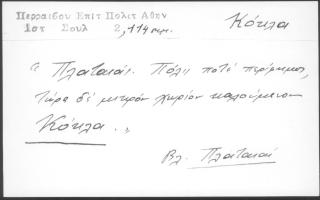 Περραιβου Επιτ Πολιτ Αθην
Ιστ Σουλ 2,114 σημ.
Κόκλα
"Πλαταιαί. Πόλις ποτέ περίφημος,
τώρα δέ μικρόν χωρίον καλούμενον
Κόκλα."
Βλ. Πλαταιαί